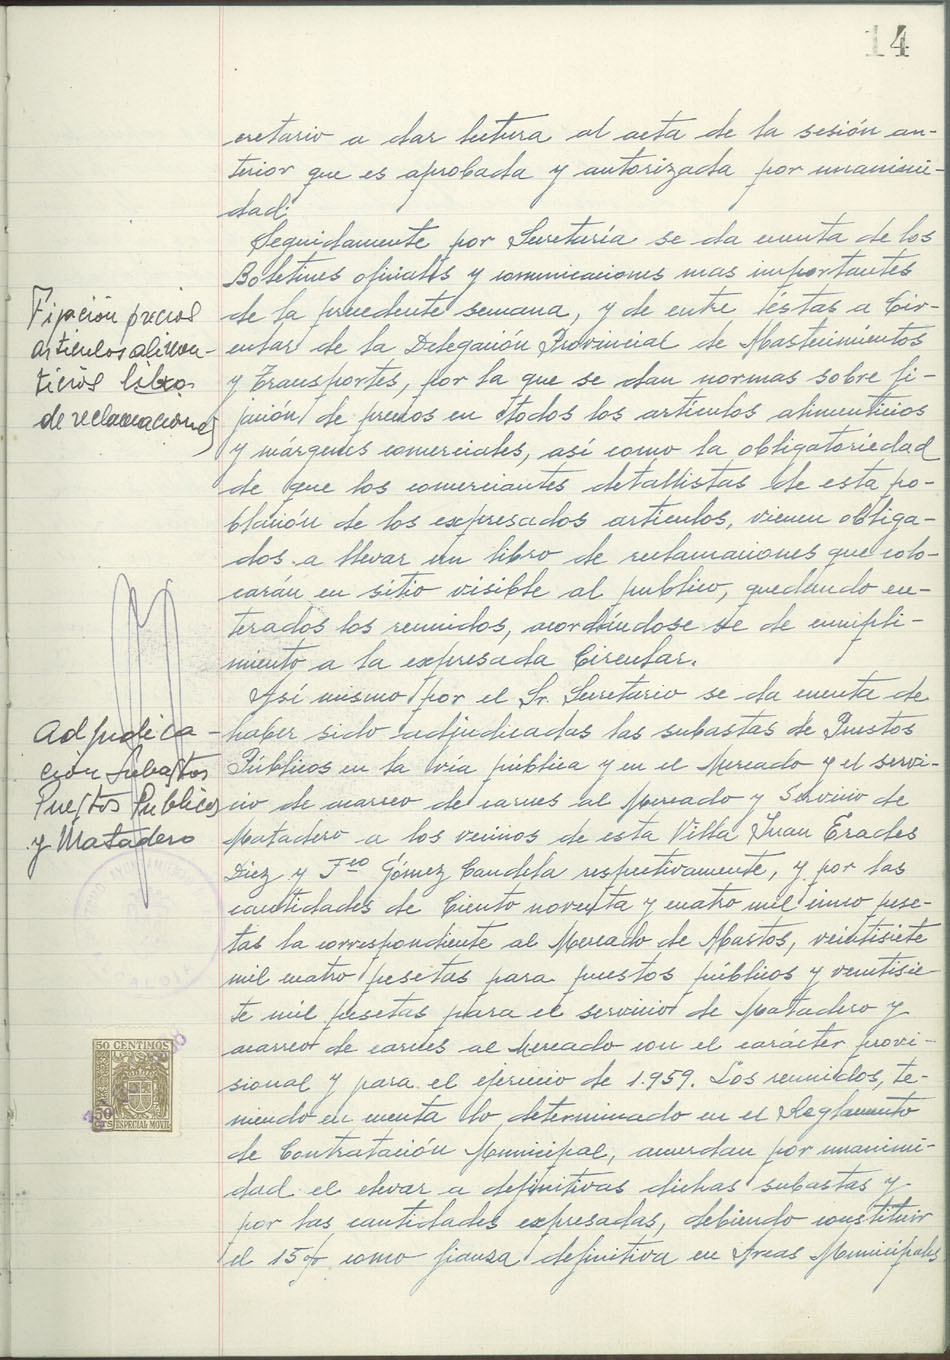 14
cretario a dar lectura al acta de la sesión an-
terior que es aprobada y autorizada por unanimi-
dad.
Seguidamente por Secretaría se da cuenta de los
Boletines oficiales y comunicaciones mas importantes
de la precedente semana, y de entre éstas a Cir-
cular de la Delegación Provincial de Abastecimientos
y Transportes, por la que se dan normas sobre fi-
jación de precios en todos los artículos alimenticios
y márgenes comerciales, así como la obligatoriedad
de que los comerciantes detallistas de esta po-
blación de los expresados artículos, vienen obliga-
dos a llevar un libro de reclamaciones que colo-
carán en sitio visible al publico, quedando en-
terados los reunidos, acordándose se de cumpli-
miento a la expresada Circular.
Así mismo por el Sr. Secretario se da cuenta de
haber sido adjudicadas las subastas de Puestos
Públicos en la vía pública y en el Mercado y el servi-
cio de acarreo de carnes al Mercado y Servicio de
Matadero a los vecinos de esta Villa Juan Erades
Diez y Fco Gómez Candela respectivamente, y por las
cantidades de Ciento noventa y cuatro mil cinco pese-
tas la correspondiente al Mercado de Abastos, veintisiete
mil cuatro pesetas para puestos públicos y veintisie-
te mil pesetas para el servicio de Matadero y
acarreo de carnes al Mercado con el carácter provi-
sional y para el ejercicio de 1.959. Los reunidos, te-
niendo en cuenta lo determinado en el Reglamento
de Contratación Municipal, acuerdan por unanimi-
dad el elevar a definitivas dichas subastas y
por las cantidades expresadas, debiendo constituir
el 15% como fianza definitiva en Arcas Municipales
Fijación precios
artículos alimen-
ticios libro
de reclamaciones
Adjudica-
ción Subastas
Puestos Publicos
y Matadero
AYUNTAMIENTO
ALCALDIA
50 CENTIMOS
50
CTS
ESPECIAL MOVIL